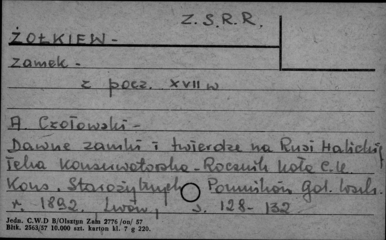 Z. S. R. R.
ŻOŁKIEW -
zamek -
z pocz. XVII w
A. Czołowski -
Dawne zamki i twierdze na Rusi Halickiej
Teka Konserwatorska - Rocznik Koła C.K.
Kons. Starożytnych Pomników Gal. Wsch.
r. 1892. Lwów, s. 128-132
Jedn. C.W.D B/Olsztyn Zam 2776 /on/ 57
Bltk. 2563/57 10.000 szt. karton kl. 7 g 220.